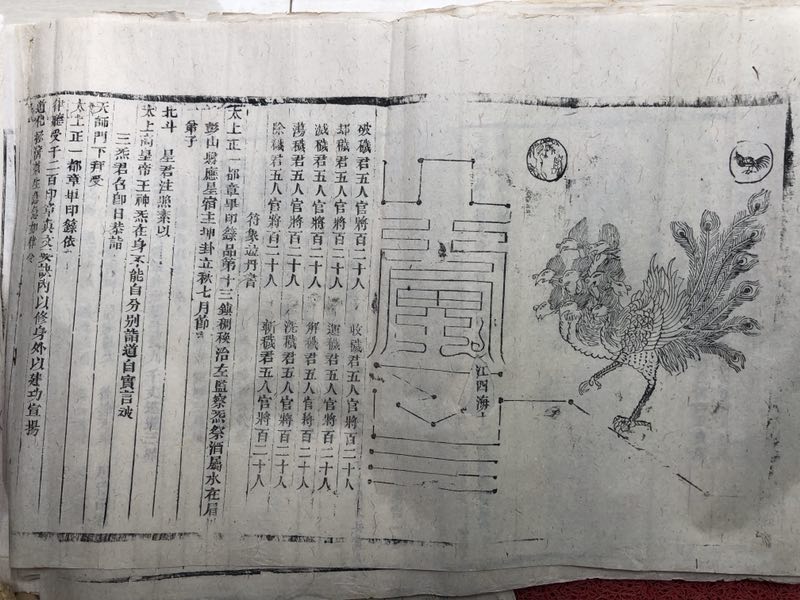 江四海
破穢君五人官將百二十人 收穢君五人官將百二十人
却穢君五人官將百二十人 穢君五人官將百二十人
滅穢君五人官將百二十人 解穢君五人官將百二十人
蕩穢君五人官將百二十人 洗穢君五人官將百二十人
除穢君五人官將百二十人 斬穢君五人官將百二十人
太上正一都章畢印籙品第十三鎮稠稉治左監察炁祭酒屬水在眉
彭山縣應星宿主坤卦立秋七月節
弟子
北斗 星君注照素以
太上高皇帝王神炁在身不能自分別詣道自實言被
三炁君召卽日恭詣
天師門下拜受
太上正一都章畢印籙依
律聽受千二百印章真文內以修身外以建功宣揚
道化